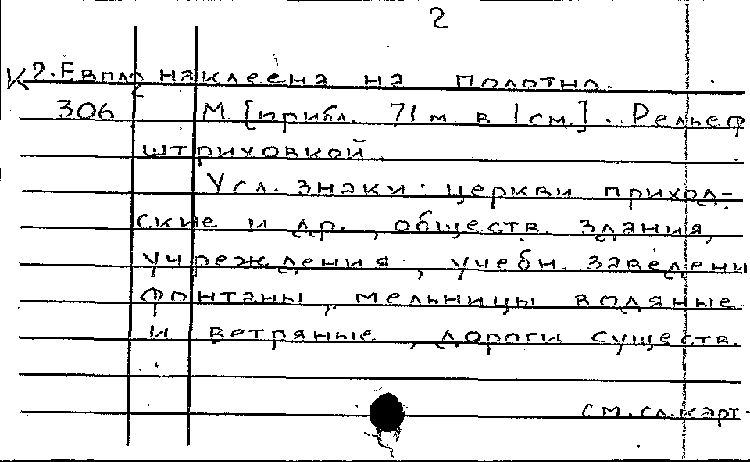 2
К 2. Евпл наклеена на полотно.
306 М [прибл. 71 м в 1 см.]. Рельеф
штриховкой.
Усл. знаки: церкви приход-
ские и др., обществ. здания,
учреждения, учебн. заведени
фонтаны, мельницы водяные
и ветряные, дороги существ.
см. сл. карт.